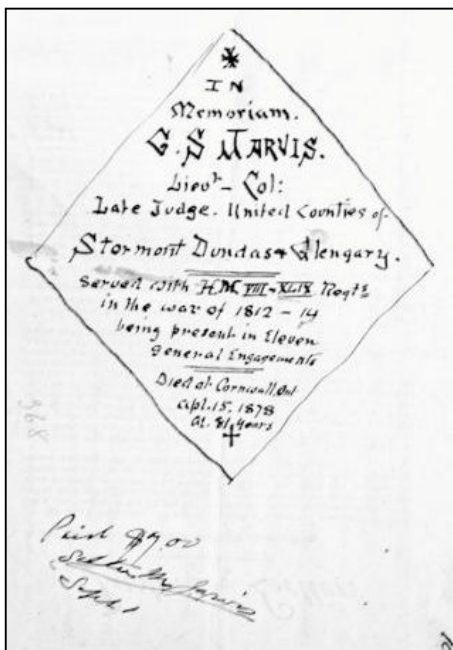 IN
Memoriam.
G. S JARVIS.
Lieut- Col:
Late Judge. United Counties of
Stormont Dundas & Glengary.
Served with H.M. VIII & XLIX Regts
in the war of 1812 - 14
being present in Eleven
General Engagements
Died at Cornwall, Ont
Apl. 15. 1878
81 years
Paid
Sept
368